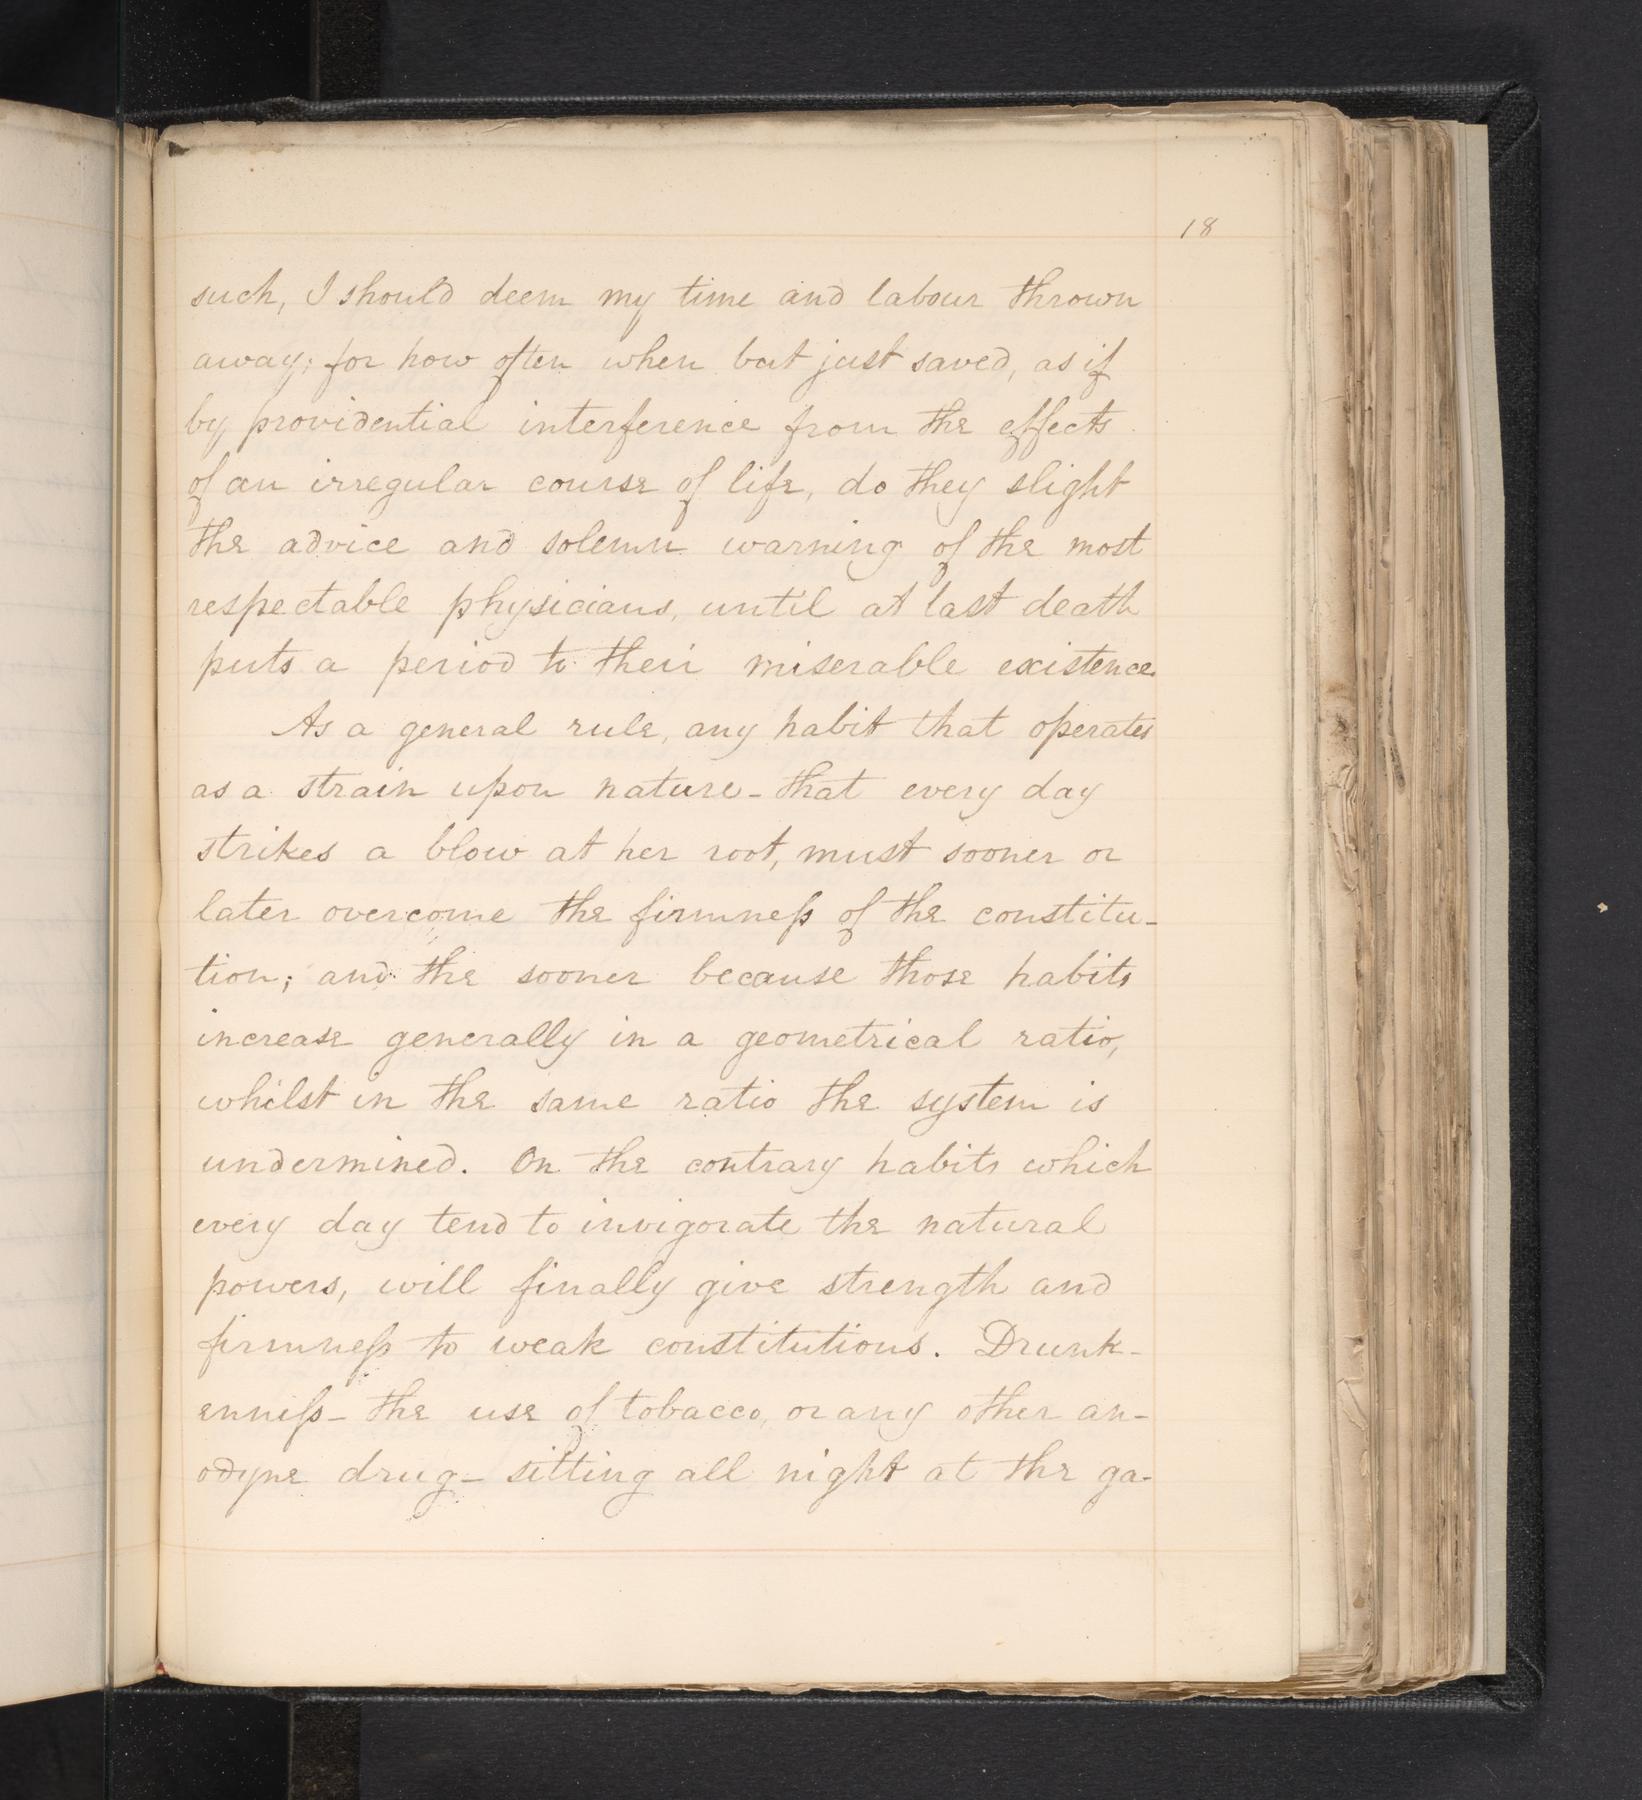 18
such, I should deem my time and labour thrown
away; for how often when but just saved, as if
by providential interference from the effects
of an irregular course of life, do they slight
the advice and solemn warning of the most
respectable physicians, until at last death
puts a period to their miserable existence.
As a general rule, any habit that operates
as a strain upon nature - that every day
strikes a blow at her root, must sooner or
later overcome the firmneſs of the constitu-
tion; and the sooner because those habits
increase generally in a geometrical ratio,
whilst in the same ratio the system is
undermined. On the contrary habits which
every day tend to invigorate the natural
powers, will finally give strength and
firmneſs to weak constitutions. Drunk-
enneſs - the use of tobacco, or any other an-
odyne drug - sitting all night at the ga-